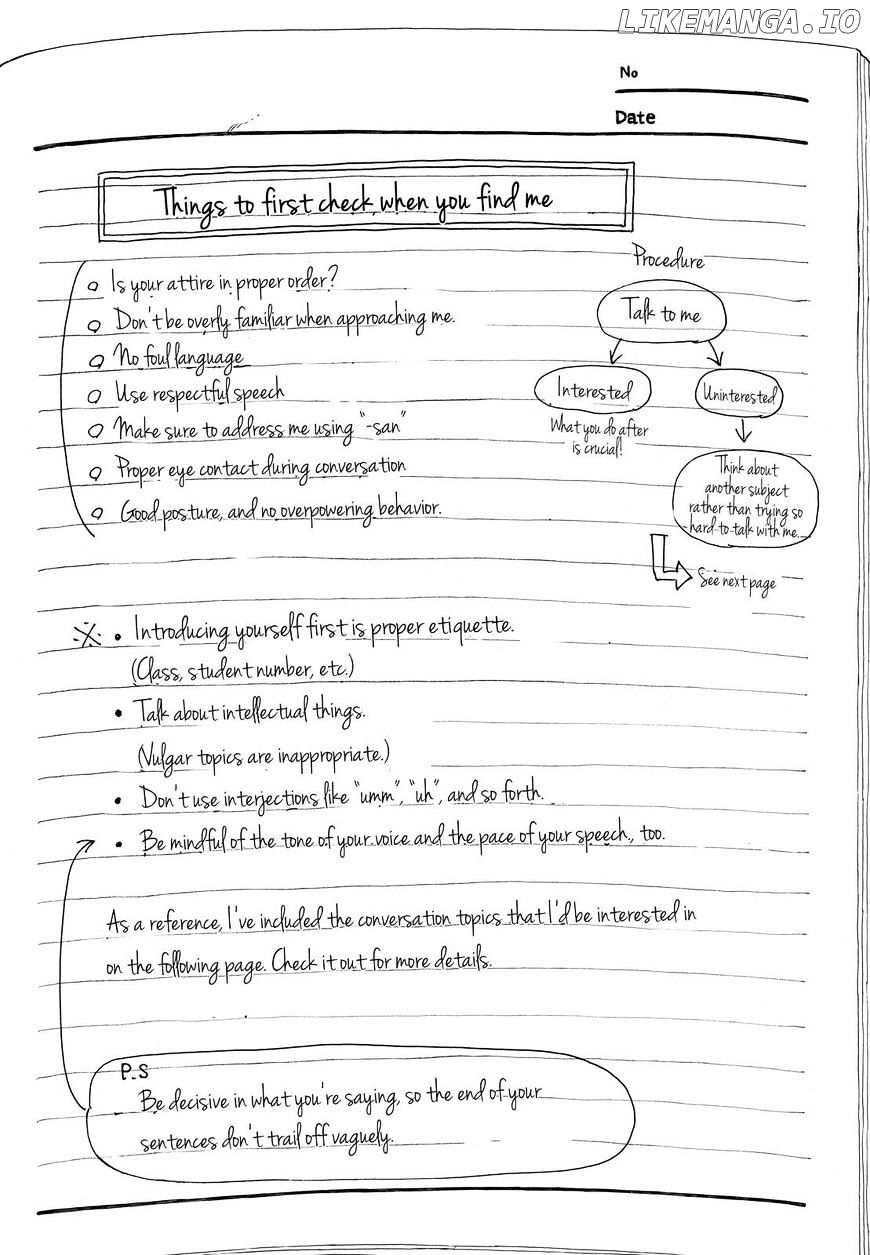 LIKEMANGA.IO
No
Date
Things to first check when you find me
Is your attire in proper order?
Don't be overly familiar when approaching me.
No foul language
Use respectful speech
Make sure to address me using "-san"
Proper eye contact during conversation
Good posture, and no overpowering behavior.
Procedure
Talk to me
Interested
What you do after
is crucial!
Uninterested
Think about
another subject
rather than trying so
hard to talk with me.
See next page
※ • Introducing yourself first is proper etiquette.
(Class, student number, etc.)
• Talk about intellectual things.
(Vulgar topics are inappropriate.)
• Don't use interjections like "umm", "uh", and so forth.
• Be mindful of the tone of your voice and the pace of your speech, too.
As a reference, I've included the conversation topics that I'd be interested in
on the following page. Check it out for more details.
P.S
Be decisive in what you're saying, so the end of your
sentences don't trail off vaguely.